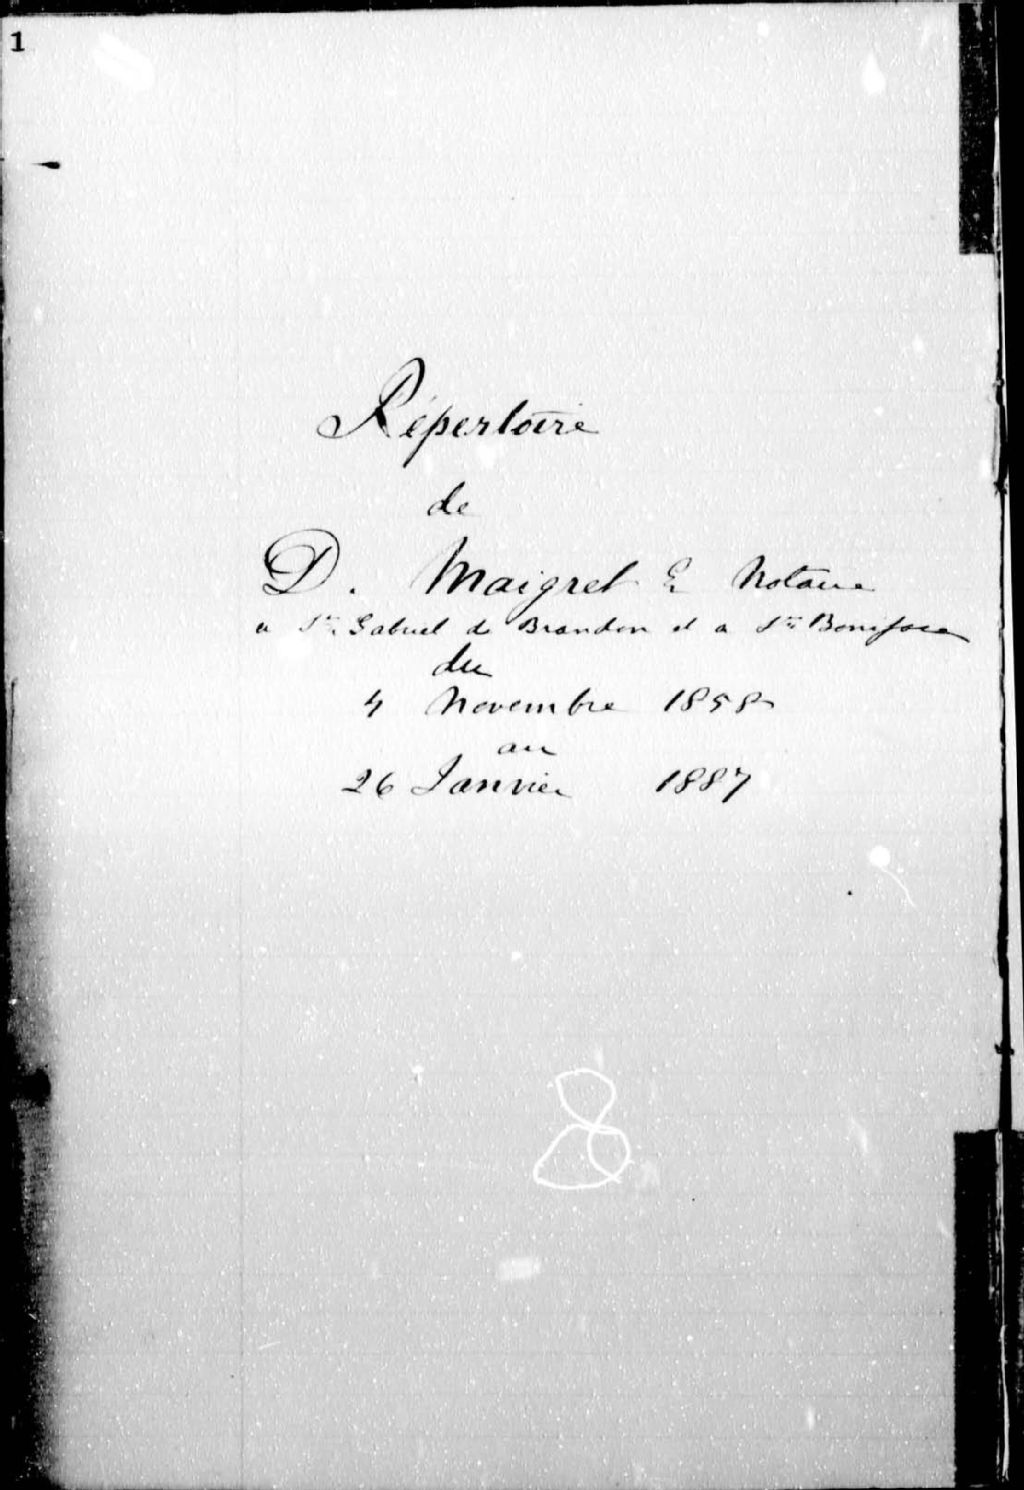 1
Répertoire
de
D. Maigret Er Notaire
a St. Gabriel de Brandon et a St. Boniface
du
4 Novembre 1858
au
26 Janvier 1887
8